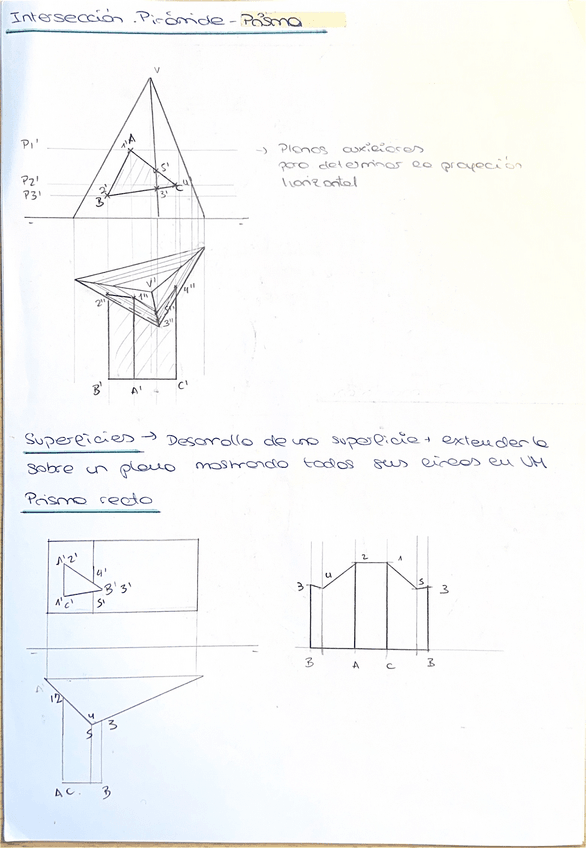 Intersección. Pirámide - Prisma
V
P1'
1' A
5'
P2'
2'
C 4'
P3'
B
3'
→ Planos auxiliares
para determinar la proyección
horizontal
V'
2'' 1'' 4''
5''
3''
B' A' C'
Superficies → Desarrollo de una superficie + extenderla
sobre un plano mostrando todas sus caras en VM
Prisma recto
A' 2'
4'
B' 3'
1' C' 5'
2 1
3 4 5 3
B A C B
A
12
4
5 3
A C. B